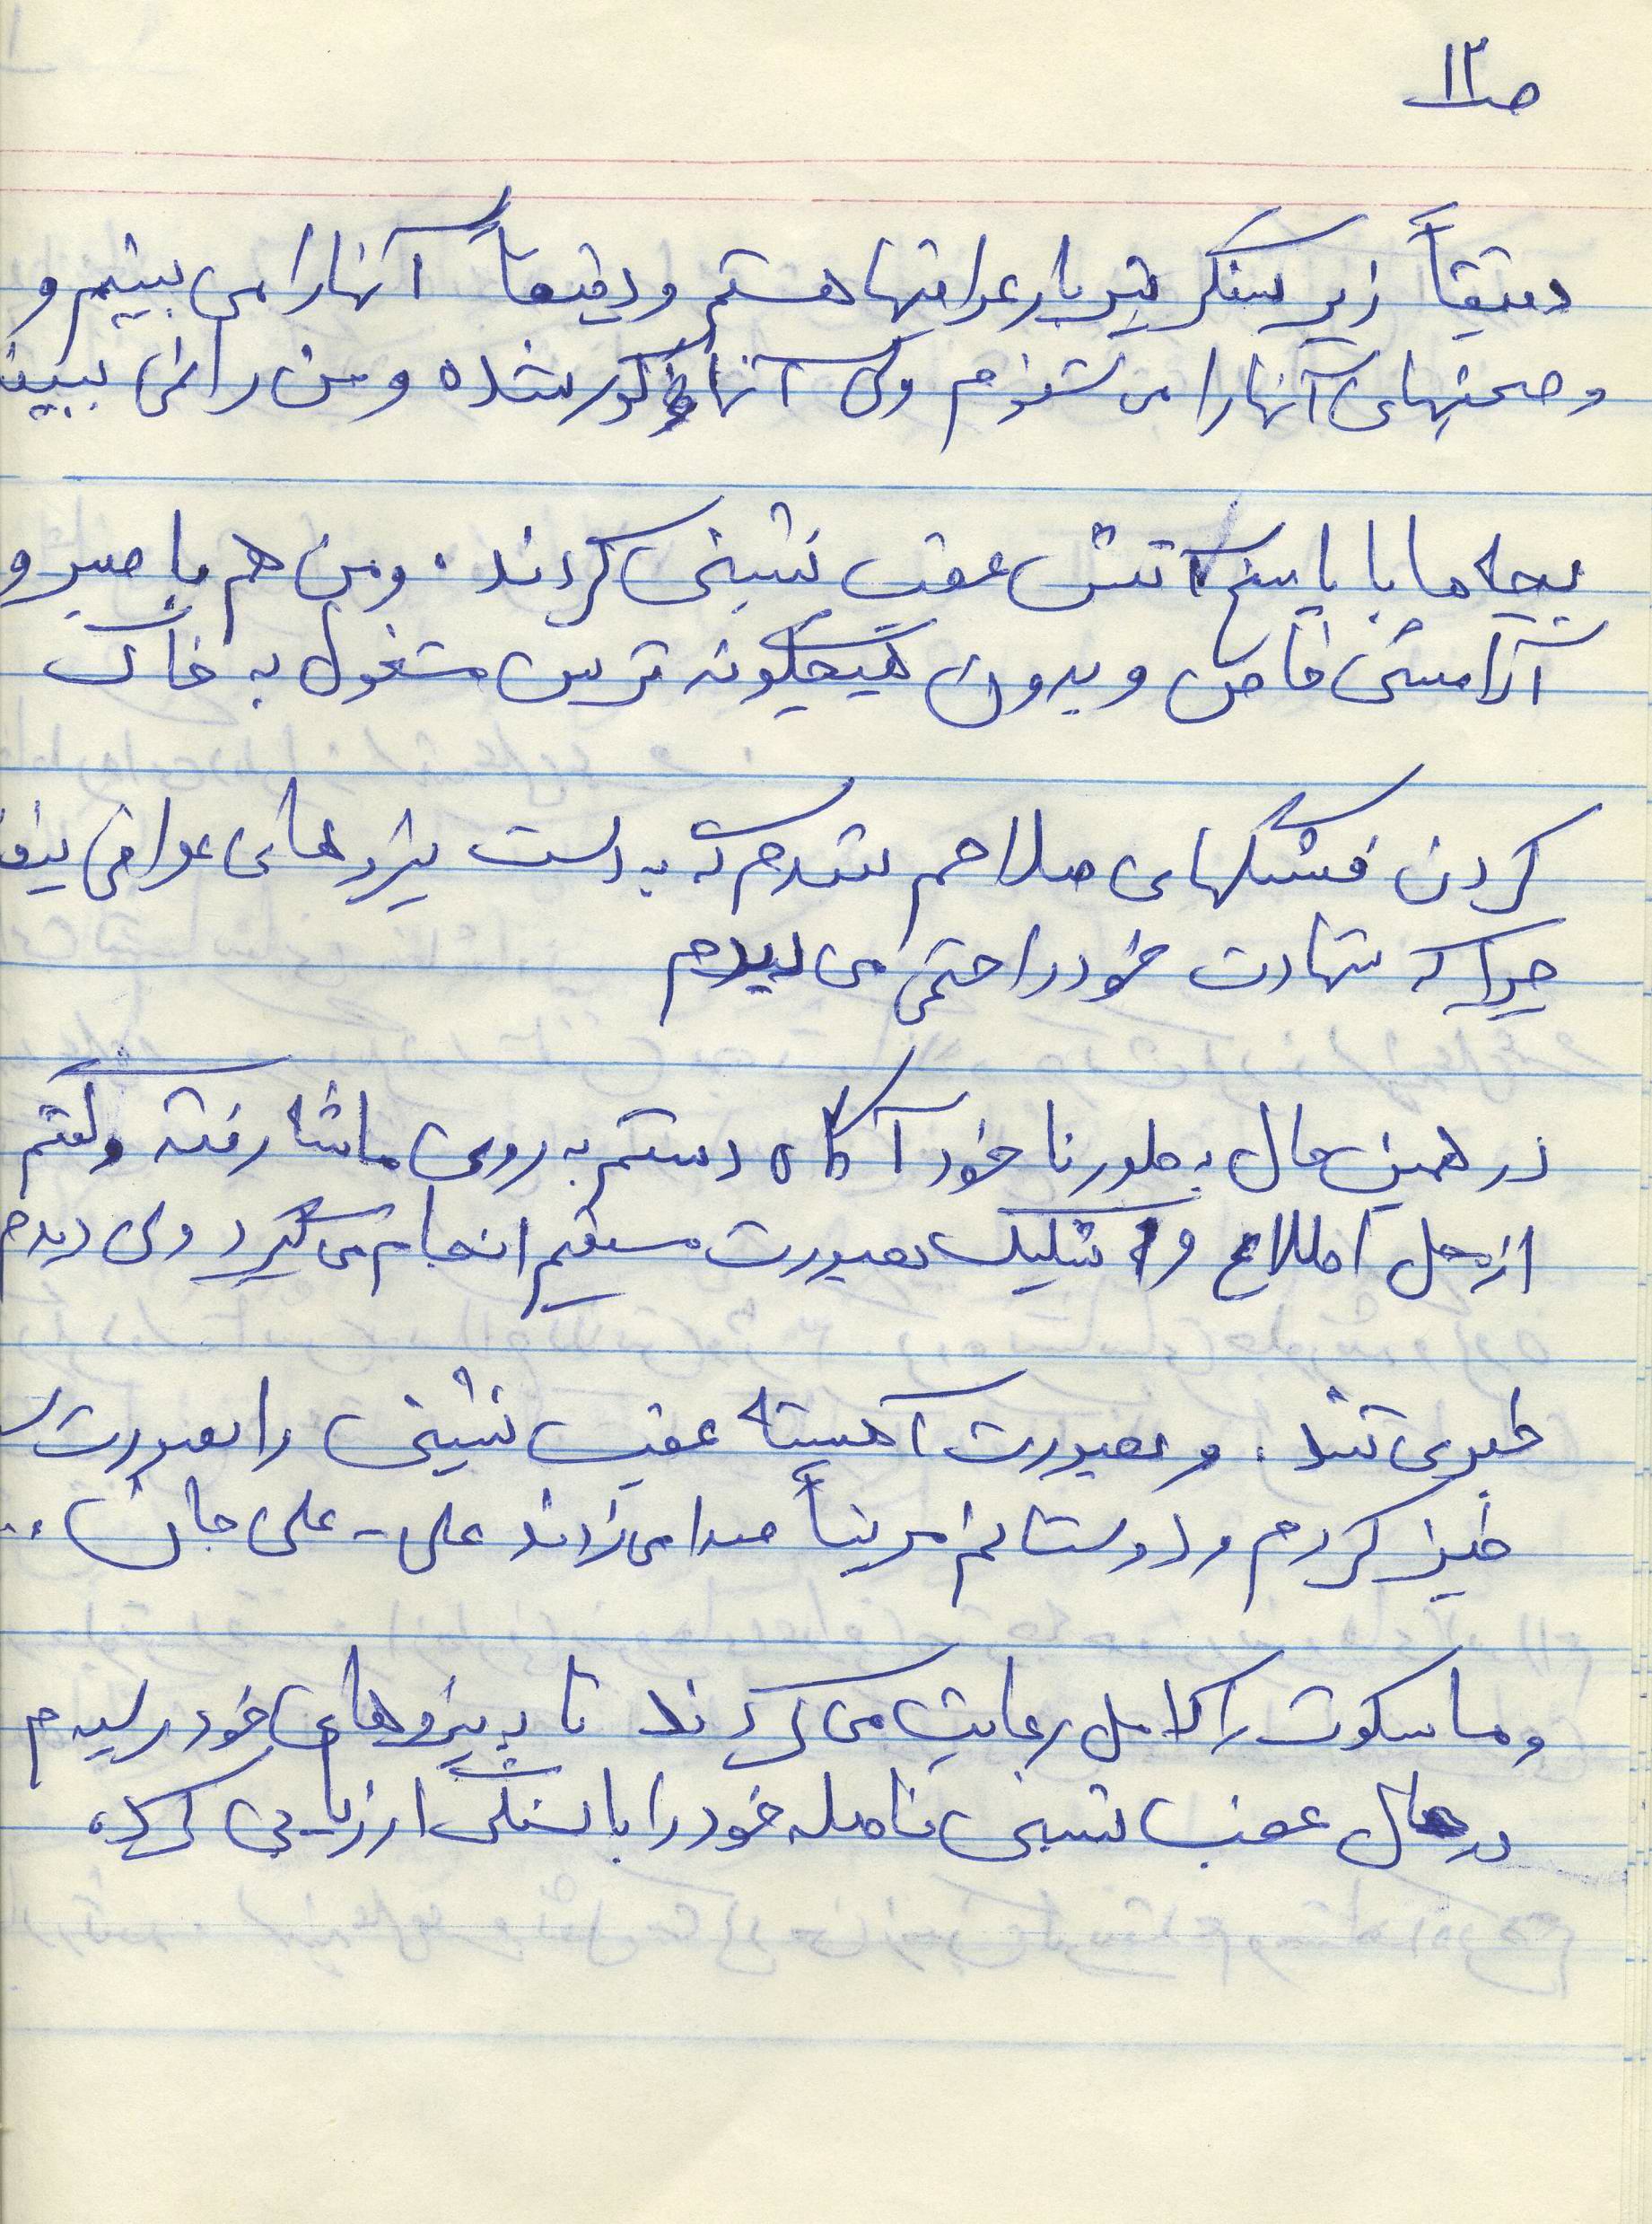 ص ۱۲
دقیقاً زیر سنگر تیربار عراقیها هستم و دقیقاً آنها را می بینم و
و صحبتهای آنها را می شنوم ولی آنها کور شده و من را نمی بینند
بچه ها با پاسخ آتش عقب نشینی کردند. و من هم با صبر و
آرامشی خاص و بدون هیچگونه ترس مشغول به خاک
کردن فشنگهای سلاحم شدم که به دست نیروهای عراقی نیفتد
چرا که شهادت خود را حتمی می دیدم
در همین حال به طور ناخودآگاه دستم به روی ماشه رفته و گفتم
از محل اطلاع و شلیک بصورت مستقیم انجام می گیرد ولی دیدم
خبری نشد. و بصورت آهسته عقب نشینی را بصورت سینه
خیز کردم و دوستانم مرتباً صدا می زدند علی - علی جان ..
و ما سکوت را کامل رعایت می کردند تا به نیروهای خود رسیدم
در حال عقب نشینی فاصله خود را با سنگر ارزیابی کرده